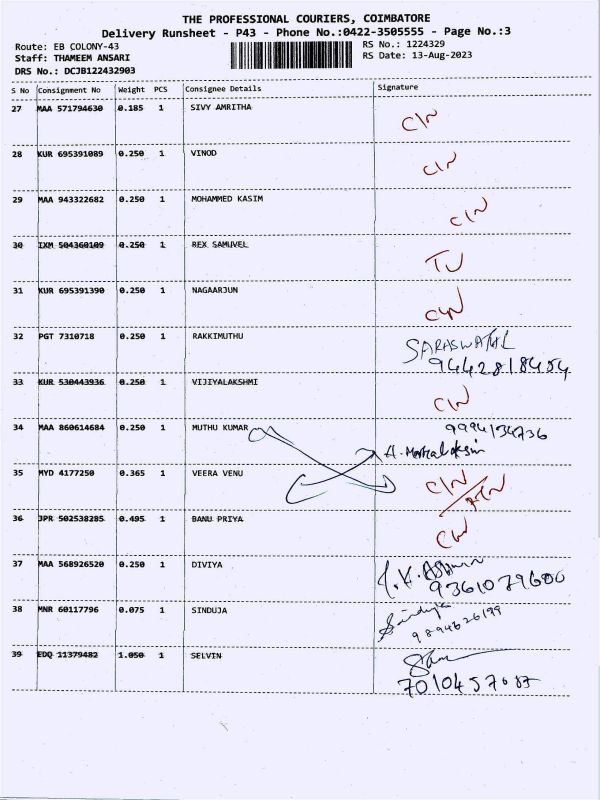 THE PROFESSIONAL COURIERS, COIMBATORE
Delivery Runsheet - P43 - Phone No.:0422-3505555 - Page No.:3
Route: EB COLONY-43 RS No.: 1224329
Staff: THAMEEM ANSARI RS Date: 13-Aug-2023
DRS No.: DCJB122432903
S No Consignment No Weight PCS Consignee Details Signature
27 MAA 571794630 0.185 1 SIVY AMRITHA C/N
28 KUR 695391089 0.250 1 VINOD C/N
29 MAA 943322682 0.250 1 MOHAMMED KASIM C/N
30 IXM 504360109 0.250 1 REX SAMUVEL TU
31 KUR 695391390 0.250 1 NAGAARJUN C/N
32 PGT 7310718 0.250 1 RAKKIMUTHU SARASWATHI
9442818454
33 KUR 530443936 0.250 1 VIJIYALAKSHMI C/N
34 MAA 860614684 0.250 1 MUTHU KUMAR 9994134736
35 MYD 4177250 0.365 1 VEERA VENU C/N
36 JPR 502538285 0.495 1 BANU PRIYA C/N
37 MAA 568926520 0.250 1 DIVIYA
9361079600
38 MNR 60117796 0.075 1 SINDUJA Sinduja
9894626199
39 EDQ 11379482 1.050 1 SELVIN